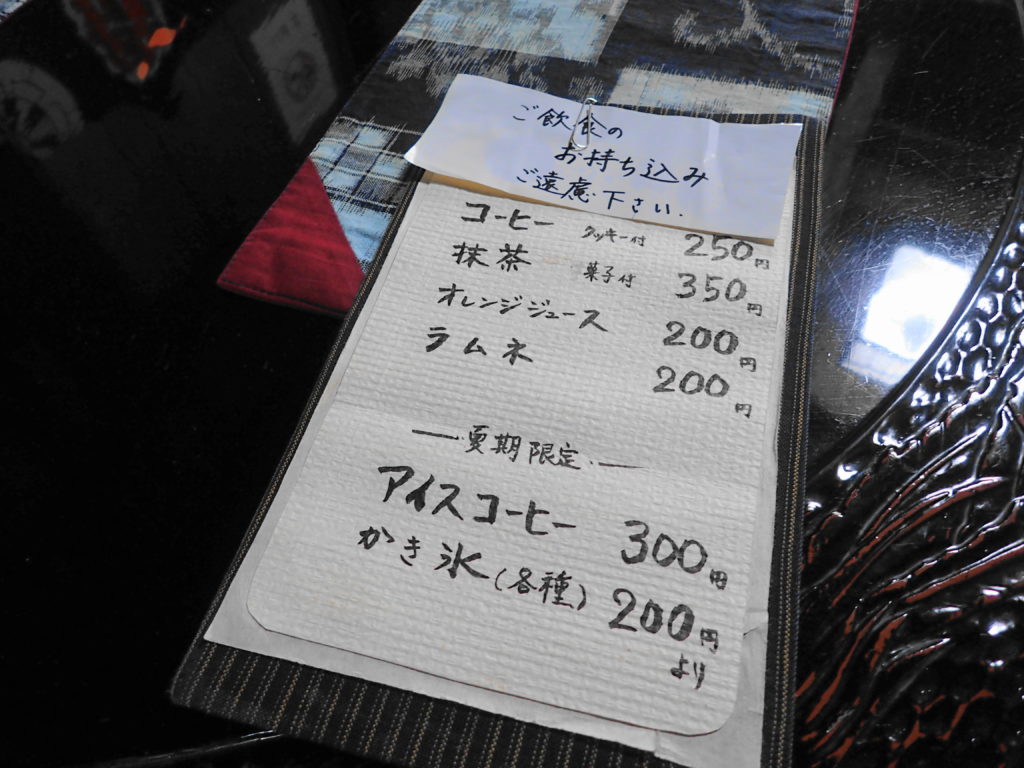 ご飲食の
お持ち込み
ご遠慮下さい.
コーヒー クッキー付 250円
抹茶 菓子付 350円
オレンジジュース 200円
ラムネ 200円
—夏期限定—
アイスコーヒー 300円
かき氷(各種) 200円
より